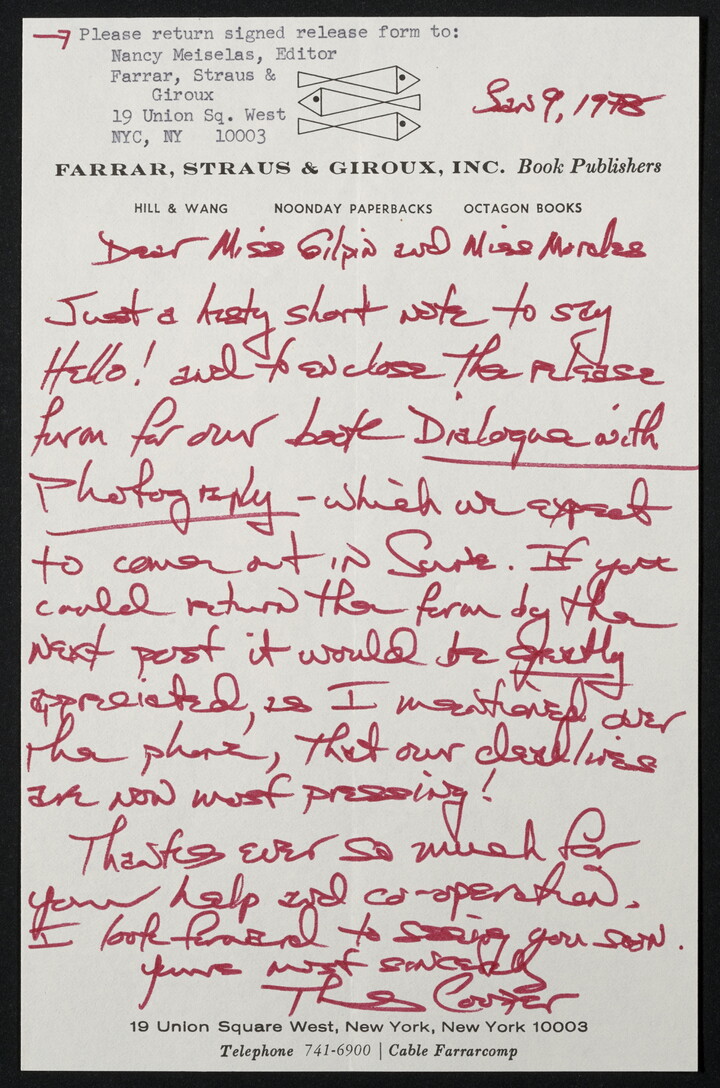 Please return signed release form to:
Nancy Meiselas, Editor
Farrar, Straus &
Giroux
19 Union Sq. West
NYC, NY 10003
Jan 9, 1978
FARRAR, STRAUS & GIROUX, INC. Book Publishers
HILL & WANG NOONDAY PAPERBACKS OCTAGON BOOKS
Dear Miss Gilpin and Miss Morales
Just a hasty short note to say
Hello! and to enclose the release
form for our book Dialogue with
Photography - which we expect
to come out in June. If you
could return the form by the
next post it would be greatly
appreciated, as I mentioned over
the phone, that our deadlines
are now most pressing!
Thanks ever so much for
your help and co-operation.
I look forward to seeing you soon.
yours most sincerely
Thos Cooper
19 Union Square West, New York, New York 10003
Telephone 741-6900 | Cable Farrarcomp